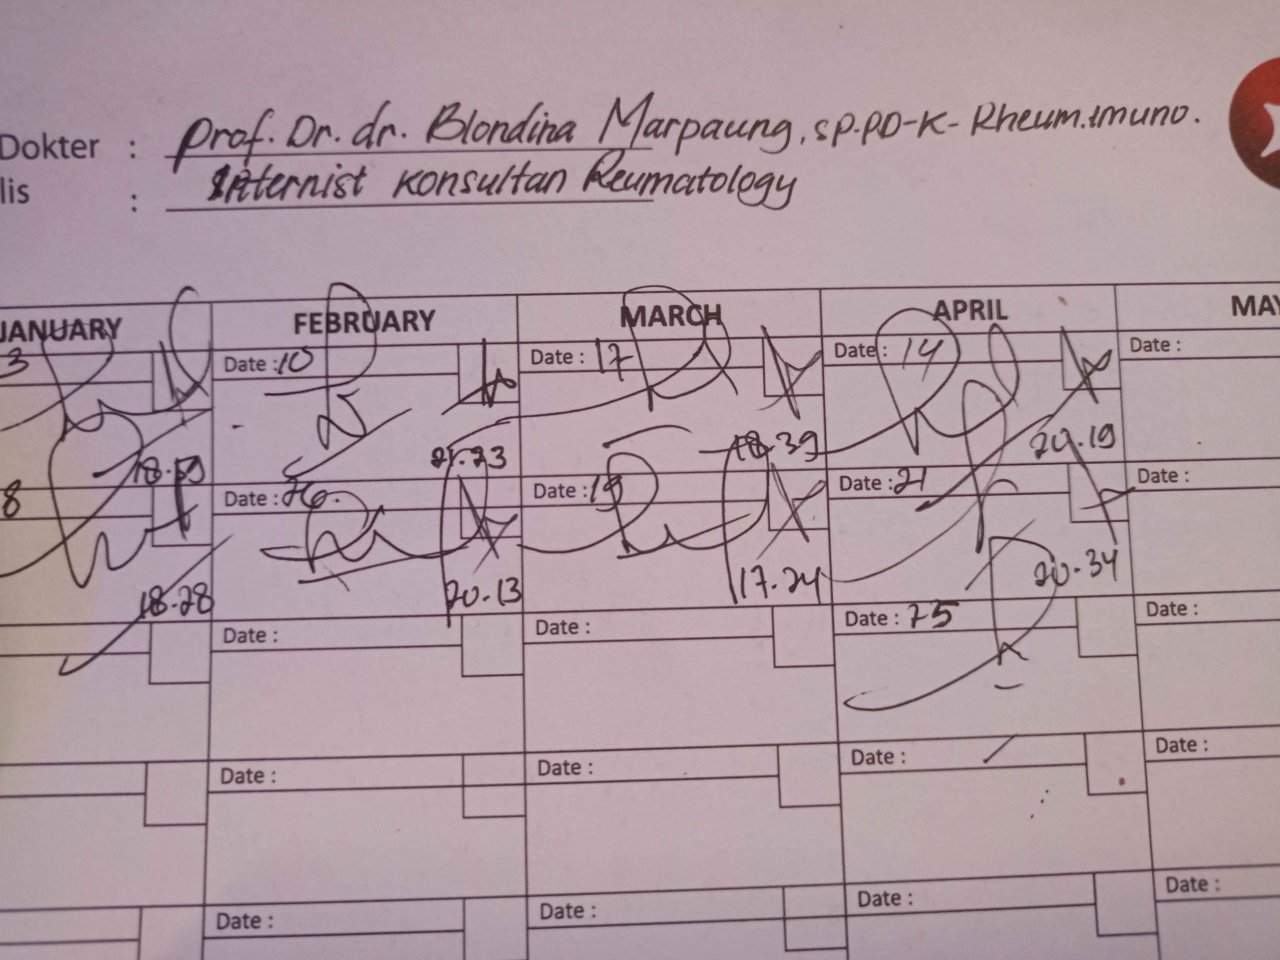 Dokter : Prof. Dr. dr. Blondina Marpaung, SP.PD-K-Rheum.imuno.
lis : Internist Konsultan Reumatology
JANUARY FEBRUARY MARCH APRIL MAY
3 Date : 10 Date : 17 Date : 14 Date :
18.39 20.19
8 Date : 26. Date : 19 Date : 21 Date :
18.28 20.13 17.24 20.34
Date : Date : Date : 25 Date :
Date : Date : Date : Date :
Date : Date : Date : Date :